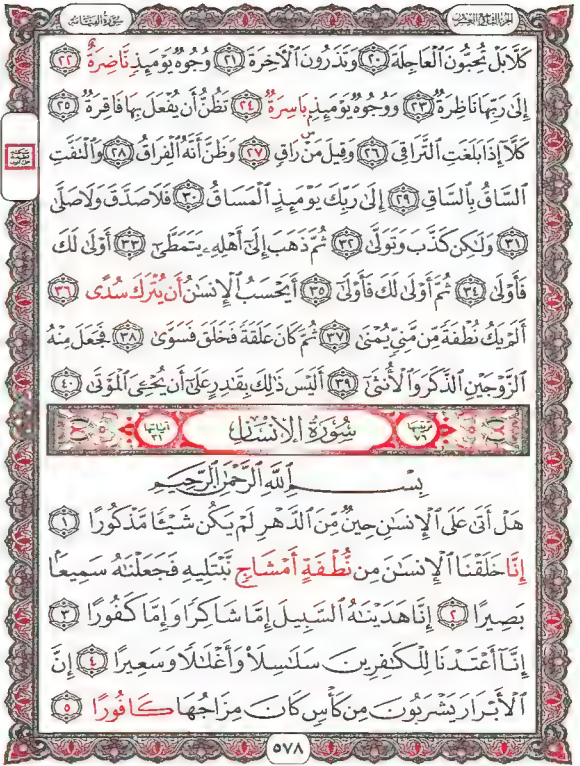 سُورَةُ القِيَامَةِ
الجزء التاسع والعشرون
كَلَّا بَلْ تُحِبُّونَ ٱلْعَاجِلَةَ ٢٠ وَتَذَرُونَ ٱلْآخِرَةَ ٢١ وُجُوهٌ يَوْمَئِذٍ نَّاضِرَةٌ ٢٢
إِلَىٰ رَبِّهَا نَاظِرَةٌ ٢٣ وَوُجُوهٌ يَوْمَئِذٍۭ بَاسِرَةٌ ٢٤ تَظُنُّ أَن يُفْعَلَ بِهَا فَاقِرَةٌ ٢٥
كَلَّآ إِذَا بَلَغَتِ ٱلتَّرَاقِىَ ٢٦ وَقِيلَ مَنْ ۜ رَاقٍ ٢٧ وَظَنَّ أَنَّهُ ٱلْفِرَاقُ ٢٨ وَٱلْتَفَّتِ
ٱلسَّاقُ بِٱلسَّاقِ ٢٩ إِلَىٰ رَبِّكَ يَوْمَئِذٍ ٱلْمَسَاقُ ٣٠ فَلَا صَدَّقَ وَلَا صَلَّىٰ
٣١ وَلَٰكِن كَذَّبَ وَتَوَلَّىٰ ٣٢ ثُمَّ ذَهَبَ إِلَىٰٓ أَهْلِهِۦ يَتَمَطَّىٰٓ ٣٣ أَوْلَىٰ لَكَ
فَأَوْلَىٰ ٣٤ ثُمَّ أَوْلَىٰ لَكَ فَأَوْلَىٰٓ ٣٥ أَيَحْسَبُ ٱلْإِنسَٰنُ أَن يُتْرَكَ سُدًى ٣٦
أَلَمْ يَكُ نُطْفَةً مِّن مَّنِىٍّ يُمْنَىٰ ٣٧ ثُمَّ كَانَ عَلَقَةً فَخَلَقَ فَسَوَّىٰ ٣٨ فَجَعَلَ مِنْهُ
ٱلزَّوْجَيْنِ ٱلذَّكَرَ وَٱلْأُنثَىٰٓ ٣٩ أَلَيْسَ ذَٰلِكَ بِقَٰدِرٍ عَلَىٰٓ أَن يُحْـِۧىَ ٱلْمَوْتَىٰ ٤٠
ترتيبها ٧٦ سُورَةُ الإِنسَانِ آياتها ٣١
بِسْمِ ٱللَّهِ ٱلرَّحْمَٰنِ ٱلرَّحِيمِ
هَلْ أَتَىٰ عَلَى ٱلْإِنسَٰنِ حِينٌ مِّنَ ٱلدَّهْرِ لَمْ يَكُن شَيْـًٔا مَّذْكُورًا ١
إِنَّا خَلَقْنَا ٱلْإِنسَٰنَ مِن نُّطْفَةٍ أَمْشَاجٍ نَّبْتَلِيهِ فَجَعَلْنَٰهُ سَمِيعًۢا
بَصِيرًا ٢ إِنَّا هَدَيْنَٰهُ ٱلسَّبِيلَ إِمَّا شَاكِرًا وَإِمَّا كَفُورًا ٣
إِنَّآ أَعْتَدْنَا لِلْكَٰفِرِينَ سَلَٰسِلَا۟ وَأَغْلَٰلًا وَسَعِيرًا ٤ إِنَّ
ٱلْأَبْرَارَ يَشْرَبُونَ مِن كَأْسٍ كَانَ مِزَاجُهَا كَافُورًا ٥
٥٧٨